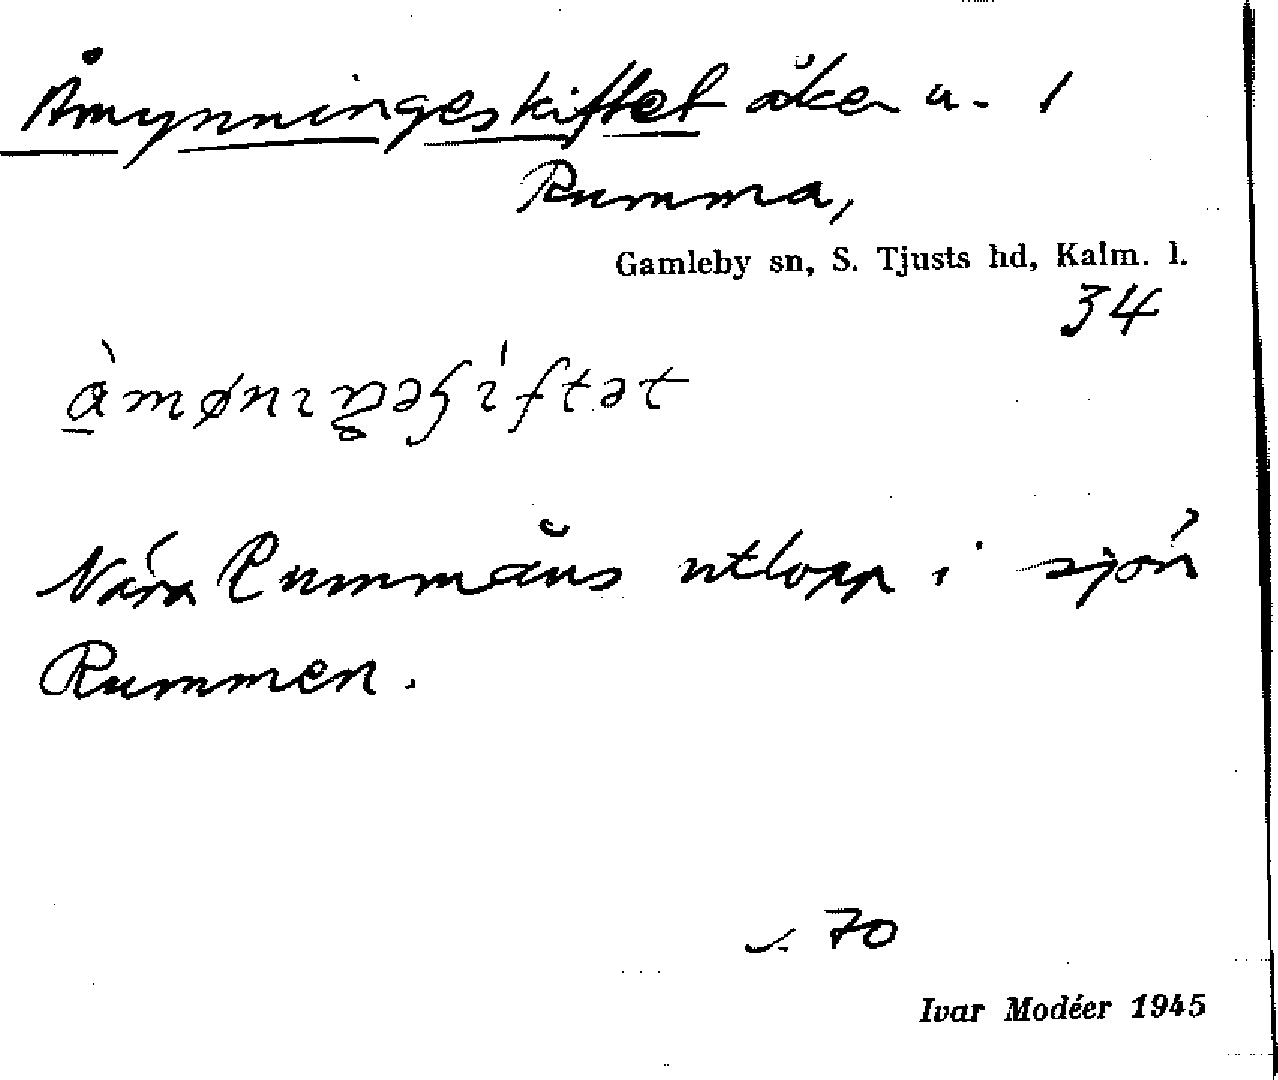 Åmynningeskiftet åker u. 1
Rumma,
Gamleby sn, S. Tjusts hd, Kalm. l.
34
Nära Rummaåns utlopp i sjön
Rummen.
70
Ivar Modéer 1945